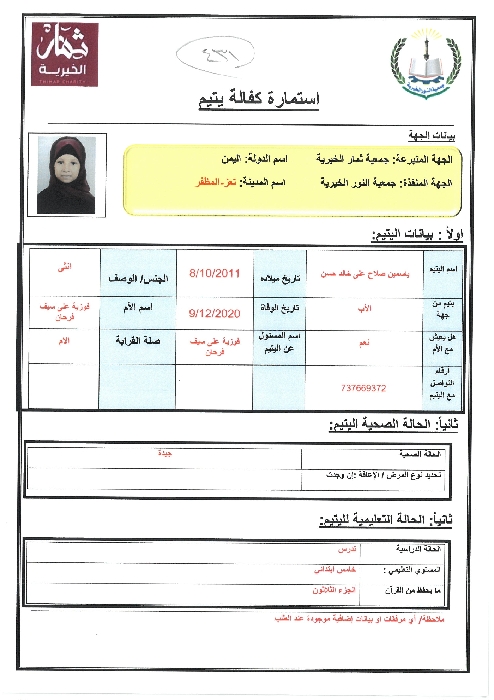 ثمار
الخيرية
THIMAR CHARITY
(٤٣٦)
جمعية النور الخيرية
استمارة كفالة يتيم
بيانات الجهة
الجهة المتبرعة: جمعية ثمار الخيرية اسم الدولة: اليمن
الجهة المنفذة: جمعية النور الخيرية اسم المدينة: تعز-المظفر
اولاً : بيانات اليتيم:
اسم اليتيم ياسمين صلاح علي خالد حسن تاريخ ميلاده 8/10/2011 الجنس/ الوصف انثى
يتيم من جهة الأب تاريخ الوفاة 9/12/2020 اسم الأم فوزية علي سيف فرحان
هل يعيش مع الأم نعم اسم المسئول عن اليتيم فوزية علي سيف فرحان صلة القرابة الأم
ارقام التواصل مع اليتيم 737669372
ثانياً: الحالة الصحية لليتيم:
الحالة الصحية جيدة
تحديد نوع المرض / الأعاقة :إن وجدت
ثانياً: الحالة التعليمية لليتيم:
الحالة الدراسية تدرس
المستوي التعليمي : خامس ابتدائي
ما يحفظ من القرآن الجزء الثلاثون
ملاحظة/ أي مرفقات او بيانات إضافية موجودة عند الطلب